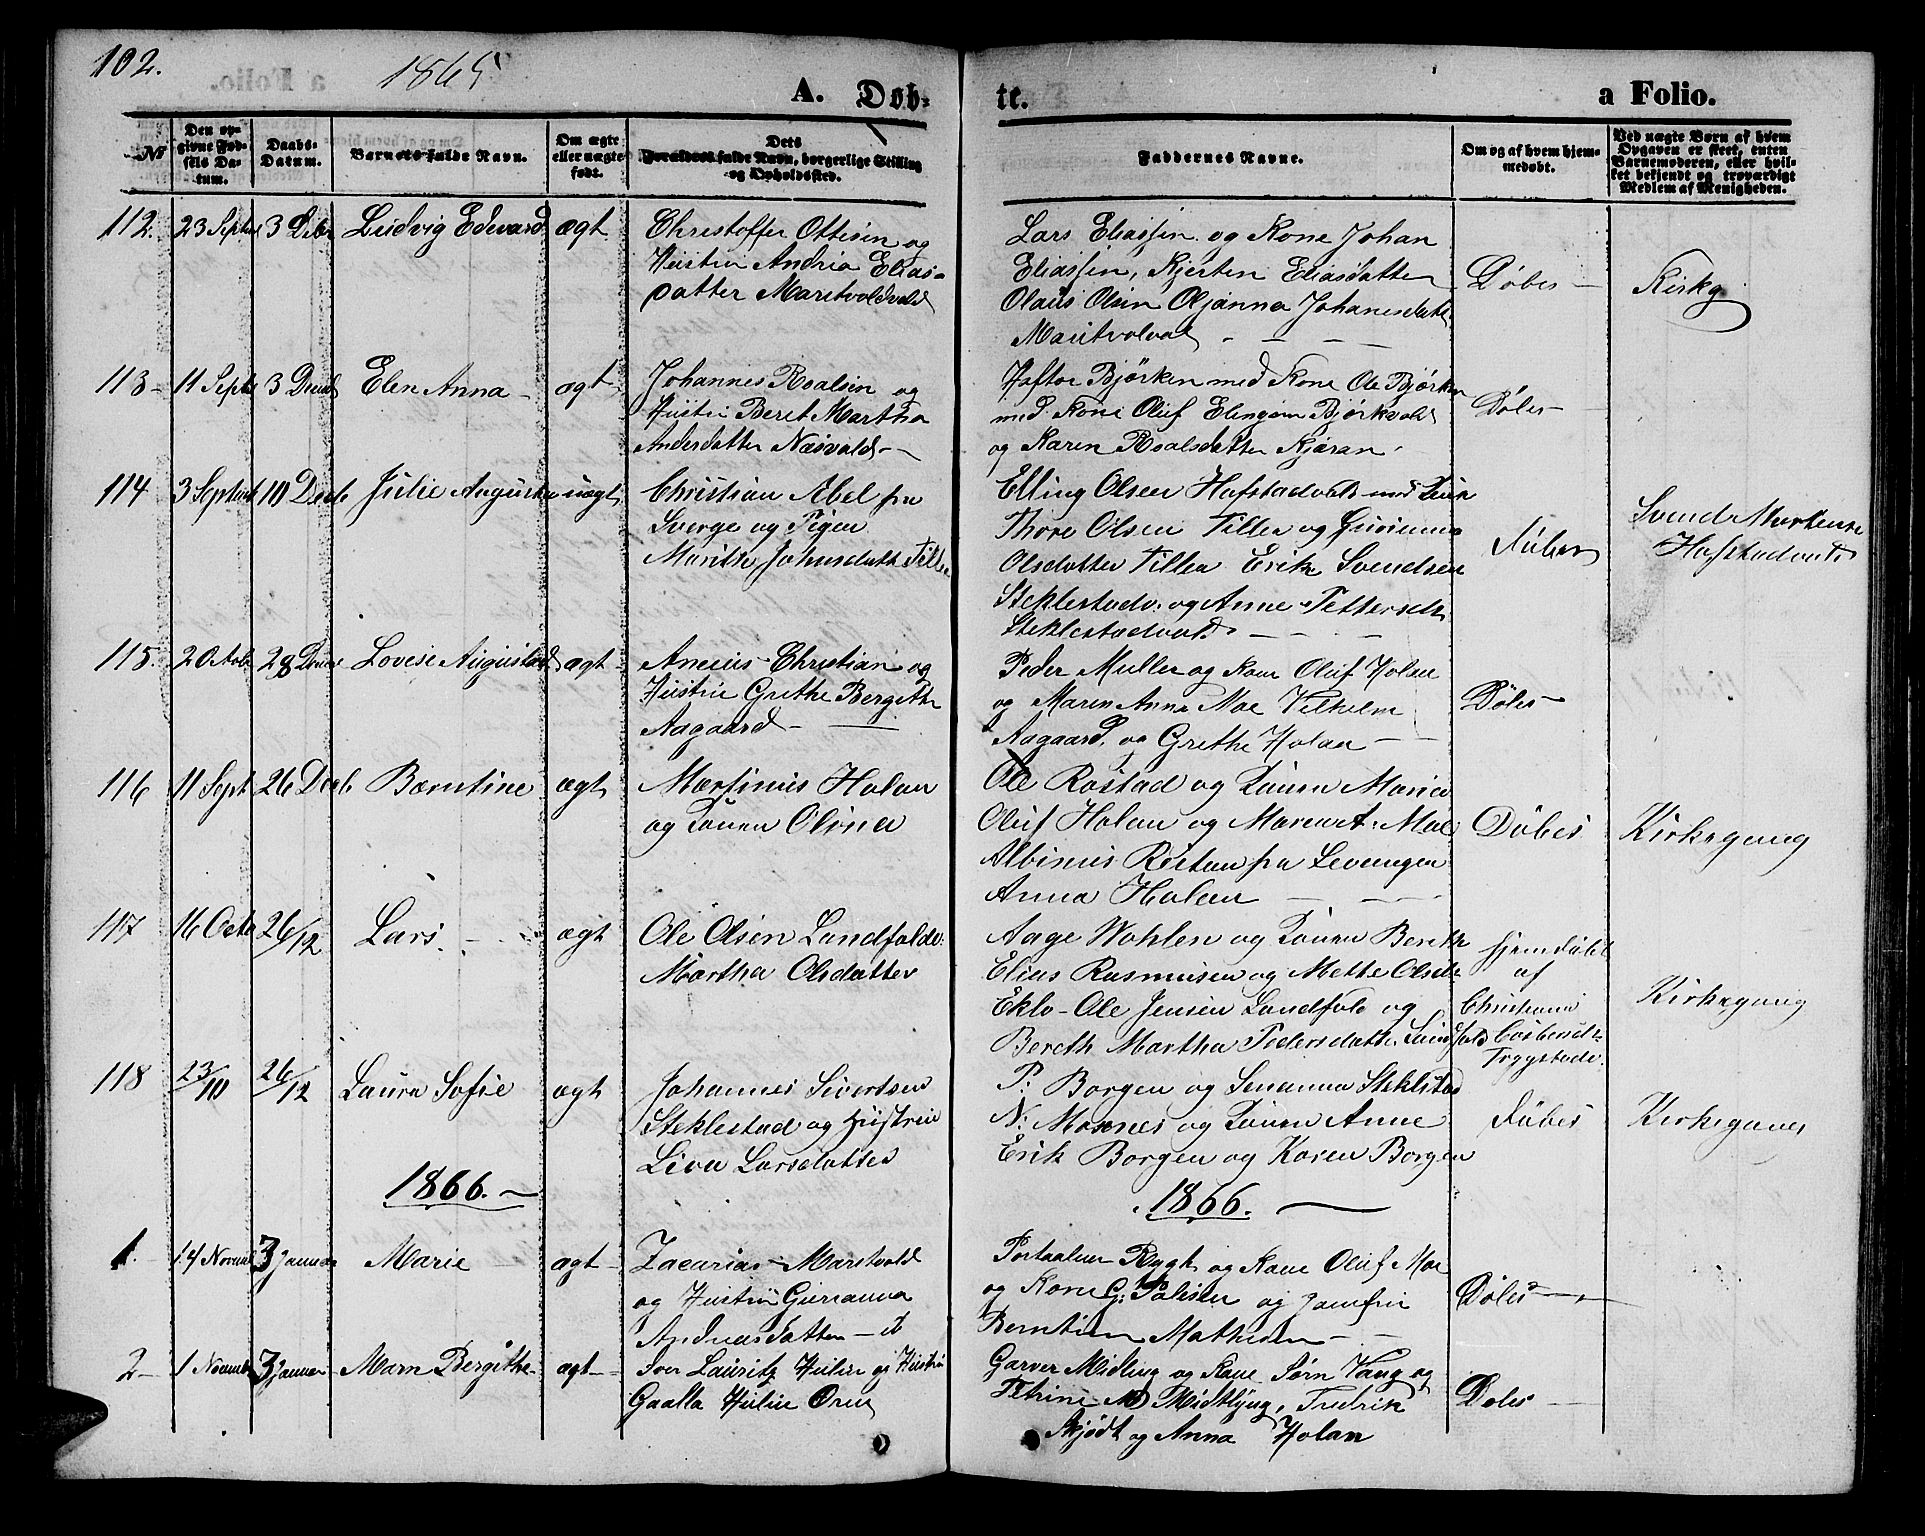 102.
1865
A. Døb-
te.
a Folio.
№
Den op-
givne Fød-
sels Da-
tum.
Daabs-
Datum.
Barnets fulde Navn.
Om ægte
eller uægte
født.
Dets
Forældres fulde Navn, borgerlige Stilling
og Opholdssted.
Faddernes Navne.
Om og af hvem hjem-
medøbt.
Ved uægte Børn af hvem
Opgaven er skeet, enten
Barnemoderen, eller hvil-
ket bekjendt og troværdigt
Medlem af Menigheden.
112. 23 Septbr 3 Debr Ludvig Edevard ægt
Christoffer Ottesen og
Hustru Andria Elias-
datter Maretvoldvald
Lars Eliassen og Kone Johan
Eliassen, Kjersten Eliasdatter
Olaus Olsen Oljanna Johanesdatt
Maritvolval - - -
Døbes -
Kirkg
113- 11 Septbr 3 Decmb Elen Anna - ægt-
Johannes Roalsen og
Hustru Beret Martha
Andersdatter Næsvald -
Haftor Bjørken med Kone Ole Bjørken
med Kone Oluf Elingsen Bjørkvald
og Karen Roalsdatter Kjæran
Døbes -
114 3 Septemb 10 Decb Julie Augusta uægt
Christian Abel fra
Sverge og Pigen
Marith Johnsdatt Tiller
Elling Olsen Hafstadvald med
Thore Olsen Tiller og
Olsdatter Tiller Erik Svendsen
Steklestadv. og Anne Pettersdtr
Steklestadvald - - -
Døbes
Svend Mortensen
Hafstadvald
115. 2 Octob 28 Decmr Lovise Augusta ægt -
Anesius Christian og
Hustru Grethe Bergithe
Aagaard -
Peder Muller og Kone Oluf Holan
og Maren Anna Moe Vilhelm
Aagaard, og Grethe Holan -
Døbes -
116 11 Sept 26 Decb Berntine ægt
Martinus Holan
og Konen Olina
Ole Rostad og Konen Maria
Oluf Holan og Margret Moe
Albinus Rostum fra Levangen
Anna Holan - - -
Døbes
Kirkegang
117 16 Octo 26/12 Lars. - ægt
Ole Olsen Landfaldv.
Martha Olsdatter
Aage Wohlen og Konen Bereth
Elias Rasmusen og Mette Olsdtr
Eklo - Ole Jensen Landfald og
Bereth Martha Pedersdatter Landfald
hjemdøbt
af
Christiana
Trygstade.
Kirkegang
118 23/10 26/12 Laura Sofie ægt
Johannes Sivertsen
Steklestad og Hustrue
Lina Larsdatter
P: Borgen og Susanna Steklstad
N: Moxnes og Konen Anne
Erik Borgen og Karen Borgen
Døbes
Kirkegang
1866. -
1866. -
1. 14 Novmb 3 Januar Marie ægt -
Zacarias Maretvold
og Hustru Gurianna
Andreasdatter -
Rygh og Kone Oluf Moe
og Kone G: Paulsen og Jomfru
Berntine Mathesen - -
Døbes -
2 - 1 Novmbr 3 Januar Marn Bergithe - ægt -
Iver Lauritz Huliin og Hustru
Gaalla Huliin Øren
Garver Midling og Kone Sørn Vang og
Petrine M Midtlyng, Fredrik
Skjødt og Anna Holan
Døbes -